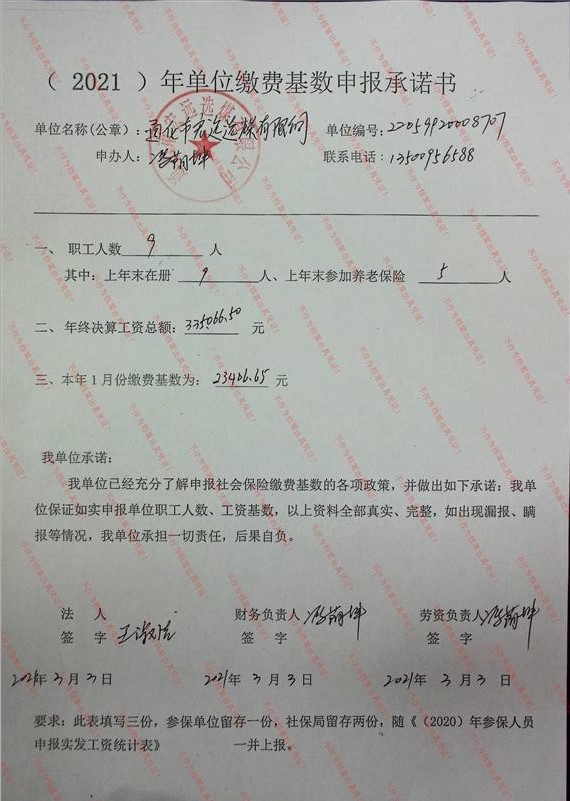 （ 2021 ）年单位缴费基数申报承诺书
单位名称(公章)：通化市宏达选煤有限公司 单位编号：22059920008707
申办人： 联系电话：13500956588
一、 职工人数 9 人
其中：上年末在册 9 人、上年末参加养老保险 5 人
二、年终决算工资总额：335066.50 元
三、本年1月份缴费基数为：23406.65 元
我单位承诺：
我单位已经充分了解申报社会保险缴费基数的各项政策，并做出如下承诺：我单
位保证如实申报单位职工人数、工资基数，以上资料全部真实、完整，如出现漏报、瞒
报等情况，我单位承担一切责任，后果自负。
法 人 财务负责人 劳资负责人
签 字 签 字 签 字
2021年 3 月 3 日 2021年 3 月 3 日 2021年 3 月 3 日
要求：此表填写三份，参保单位留存一份，社保局留存两份，随《（2020）年参保人员
申报实发工资统计表》 一并上报。